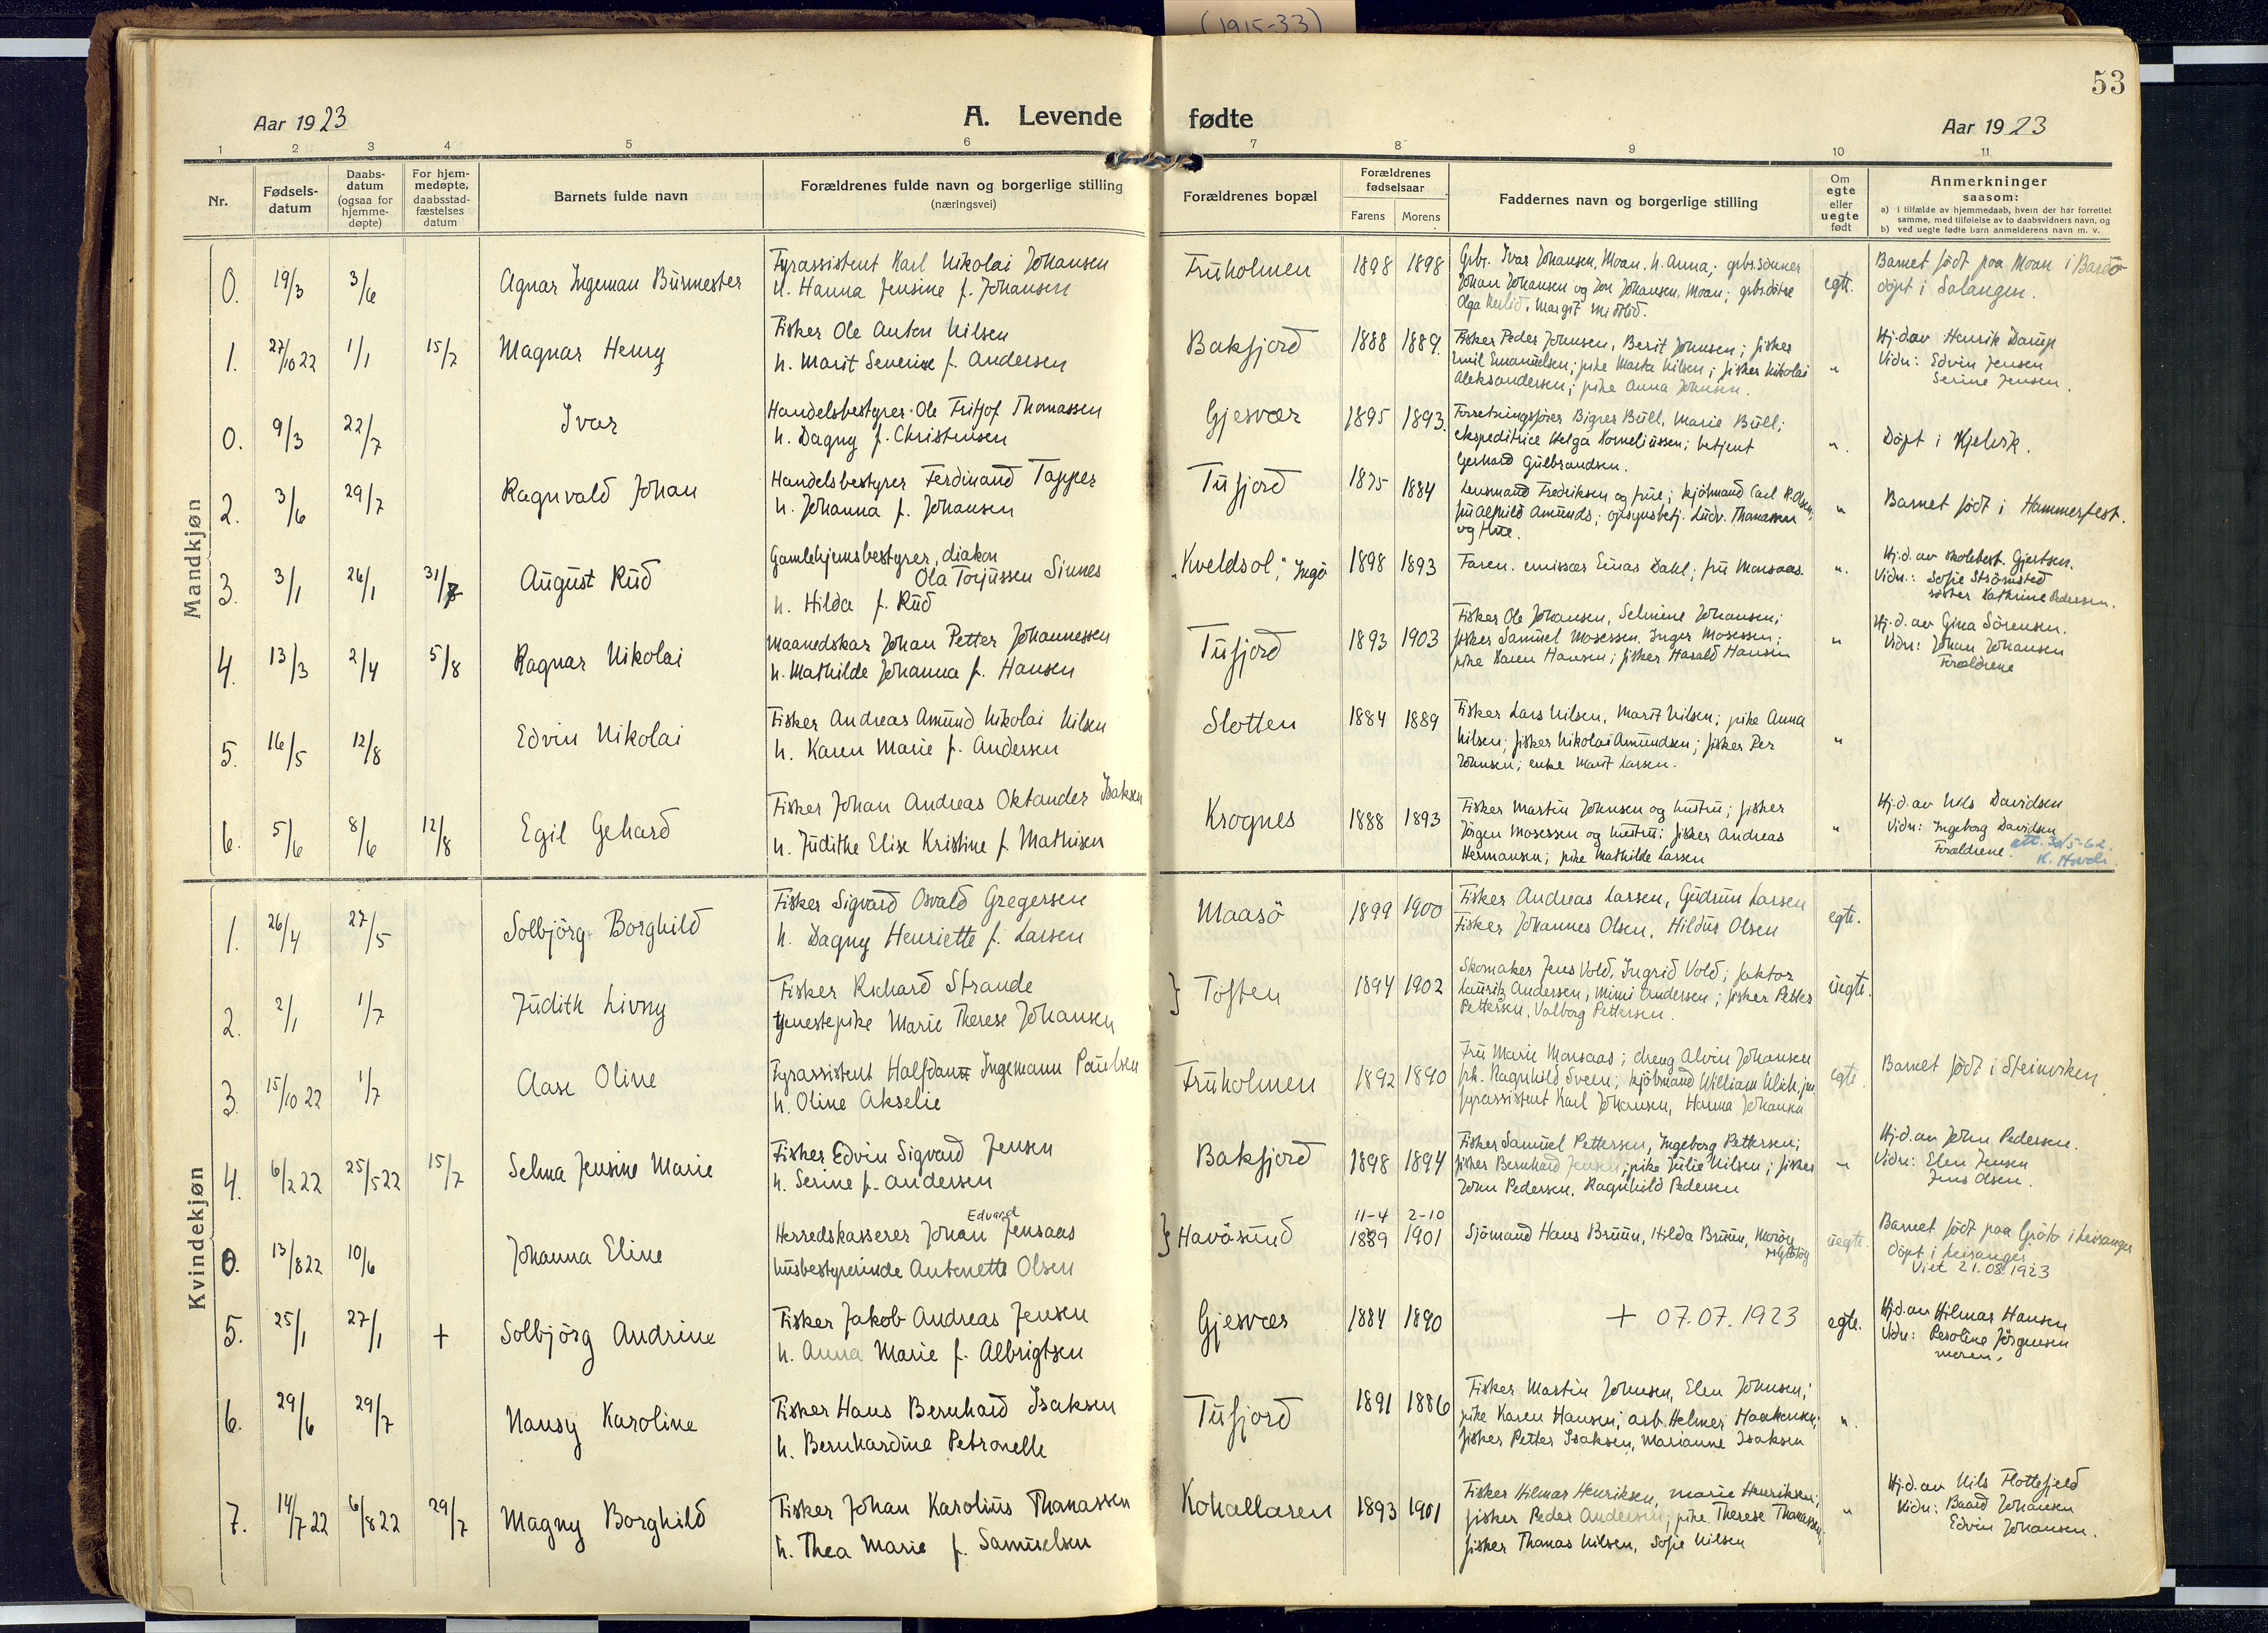 (1915-33)
53
Aar 1923
A. Levende fødte
Aar 1923
1 2 3 4 5 6 7 8 9 10 11
Nr.
Fødsels-
datum
Daabs-
datum
(ogsaa for
hjemme-
døpte)
For hjem-
medøpte,
daabsstad-
fæstelses
datum
Barnets fulde navn
Forældrenes fulde navn og borgerlige stilling
(næringsvei)
Forældrenes bopæl
Forældrenes
fødselsaar
Farens Morens
Faddernes navn og borgerlige stilling
Om
egte
eller
uegte
født
Anmerkninger
saasom:
a) i tilfælde av hjemmedaab, hvem der har forrettet
samme, med tilføielse av to daabsvidners navn, og
b) ved uegte fødte barn anmelderens navn m. v.
Mandkjøn
0. 19/3 3/6 Agnar Ingeman Burmester
Fyrassistent Karl Nikolai Johansen
h. Hanna Jensine f. Johansen
Fruholmen 1898 1898
Grbr. Ivar Johansen, Moan, h. Anna; grbr.sönner
Johan Johansen og Jon Johansen, Moan; grbr.döttre
Olga Melid, Margit Mittlid.
egte.
Barnet födt paa Moan i Bardo
döpt i Salangen.
1. 27/10 22 1/1 15/7 Magnar Henry
Fisker Ole Anton Nilsen
h. Marit Severine f. Andersen
Bakfjord 1888 1889.
Fisker Peder Johnsen, Berit Johnsen; fisker
Emil Emanuelsen; pike Marta Nilsen; fisker Nikolai
Aleksandersen; pike Anna Johnsen.
"
Hj.d. av Henrik Darup
Vidn: Edvin Jensen
Serine Jensen.
0. 9/3 22/7 Ivar
Handelsbestyrer Ole Fritjof Thomassen
h. Dagny f. Christensen
Gjesvær 1895 1893.
Forretningsförer Bigres Bull, Marie Bull;
ekspeditrice Helga Korneliussen; betjent
Gerhard Gulbrandsen.
"
Döpt i Kjelvik.
2. 3/6 29/7 Ragnvald Johan
Handelsbestyrer Ferdinand Tapper
h. Johanna f. Johansen
Tufjord 1875 1884
Lensmand Fredriksen og frue; kjöbmand Carl R. Olsen;
fru Alfhild Amunds; opsynsbetj. Ludv. Thomassen
og frue.
"
Barnet födt i Hammerfest.
3. 3/1 26/1 31/7 August Rud
Gamlehjemsbestyrer, diakon
Ola Torjussen Sinnes
h. Hilda f. Rud
"Kveldsol", Ingö 1898 1893
Faren. emissær Einar Dahl; fru Monsaas.
"
Hj.d. av skolebest. Gjertsen.
Vidn.: Sofie Strömsted
söster Kathrine Pedersen.
4. 13/3 2/4 5/8 Ragnar Nikolai
Maanedskar Johan Petter Johannessen
h. Mathilde Johanna f. Hansen
Tufjord 1893 1903
Fisker Ole Johansen, Selmine Johansen;
fisker Samuel Mosessen, Inger Mosessen;
pike Karen Hansen; fisker Harald Hansen
"
Hj.d. av Gina Sörensen.
Vidn: Johan Johansen
Forældrene
5. 16/5 12/8 Edvin Nikolai
Fisker Andreas Amund Nikolai Nilsen
h. Karen Marie f. Andersen
Slotten 1884 1889
Fisker Lars Nilsen, Marit Nilsen; pike Anna
Nilsen; fisker Nikolai Amundsen; fisker Per
Johnsen; enke Marit Larsen.
"
6. 5/6 8/6 12/8 Egil Gehard
Fisker Johan Andreas Oktander Isaksen
h. Judithe Elise Kristine f. Mathisen
Krognes 1888 1893
Fisker Martin Johnsen og hustru; fisker
Jörgen Mosessen og hustru; fisker Andreas
Hermansen; pike Mathilde Larsen
"
Hj.d. av Nils Davidsen
Vidn: Ingeborg Davidsen
Forældrene.
att. 30/5-62.
Kvindekjøn
1. 26/4 27/5 Solbjörg Borghild
Fisker Sigvard Osvald Gregersen
h. Dagny Henriette f. Larsen
Maasö 1899 1900
Fisker Andreas Larsen, Gudrun Larsen
Fisker Johannes Olsen, Hildur Olsen
egte.
2. 2/1 1/7 Judith Livny
Fisker Richard Strande
tjenestepike Marie Therese Johansen
} Toften 1894 1902
Skomaker Jens Vold, Ingrid Vold; faktor
Lauritz Andersen, Mimi Andersen; fisker Petter
Pettersen, Valborg Pettersen.
uegte.
3. 15/10 22 1/7 Aase Oline
Fyrassistent Halfdan Ingemann Paulsen
h. Oline Akselie
Fruholmen 1892 1890
Fru Marie Monsaas; dreng Alvin Johansen
frk. Ragnhild Sveen; kjöbmand William Ulich jun.
fyrassistent Karl Johansen, Hanna Johansen
egte.
Barnet födt i Steinviken
4. 6/2 22 25/5 22 15/7 Selma Jensine Marie
Fisker Edvin Sigvard Jensen
h. Serine f. Andersen
Bakfjord 1898 1894
Fisker Samuel Pettersen, Ingeborg Pettersen;
fisker Bernhard Jensen; pike Julie Nilsen; fisker
John Pedersen, Ragnhild Pedersen
"
Hj.d. av John Pedersen.
Vidn: Elen Jensen
Jens Olsen.
0. 13/8 22 10/6 Johanna Eline
Herredskasserer Johan Edvard Jensaas
husbestyrerinde Antonette Olsen
} Havösund 11-4 1889 2-10 1901
Sjömand Hans Bruun, Hilda Bruun,
uegte.
Barnet födt paa Grötö i Leiranger
döpt i Leiranger
Viet 21.08.1923
5. 25/1 27/1 + Solbjörg Andrine
Fisker Jakob Andreas Jensen
h. Anna Marie f. Albrigtsen
Gjesvær 1884 1890
+ 07.07.1923
egte.
Hj.d. av Hilmar Hansen
Vidn: Peroline Jörgensen
moren.
6. 29/6 29/7 Nansy Karoline
Fisker Hans Bernhard Isaksen
h. Bernhardine Petronelle
Tufjord 1891 1886
Fisker Martin Johnsen, Elen Johnsen;
pike Karen Hansen; arb. Helmer Haakensen;
fisker Petter Isaksen, Marianne Isaksen
"
7. 14/7 22 6/8 22 29/7 Magny Borghild
Fisker Johan Karolius Thomassen
h. Thea Marie f. Samuelsen
Kohallaren 1893 1901
Fisker Hilmar Henriksen, Marie Henriksen;
fisker Peder Andersen; pike Therese Thomassen;
fisker Thomas Nilsen, Sofie Nilsen
"
Hj.d. av Nils Flottefjeld
Vidn: Baard Johansen
Edvin Johansen.